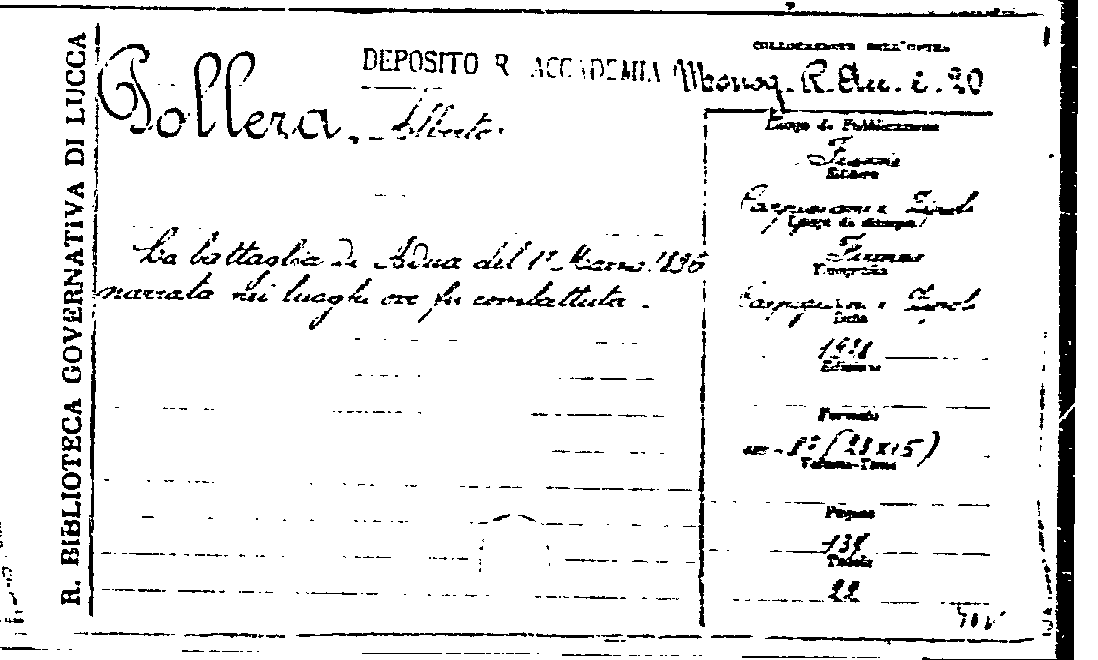 R. BIBLIOTECA GOVERNATIVA DI LUCCA
DEPOSITO R ACCADEMIA
COLLOCAZIONE DELL'OPERA
Monog. R. Au. i. 20
Pollera, Alberto
La battaglia di Adua del 1° Marzo 1896
narrata nei luoghi ove fu combattuta.
Luogo di Pubblicazione
Firenze
Editore
Carpigiani e Zipoli
Luogo di stampa
Firenze
Tipografia
Carpigiani e Zipoli
Data
1928
Edizione
Formato
in-8° (23x15)
Volume-Tomo
Pagine
Tavole
22